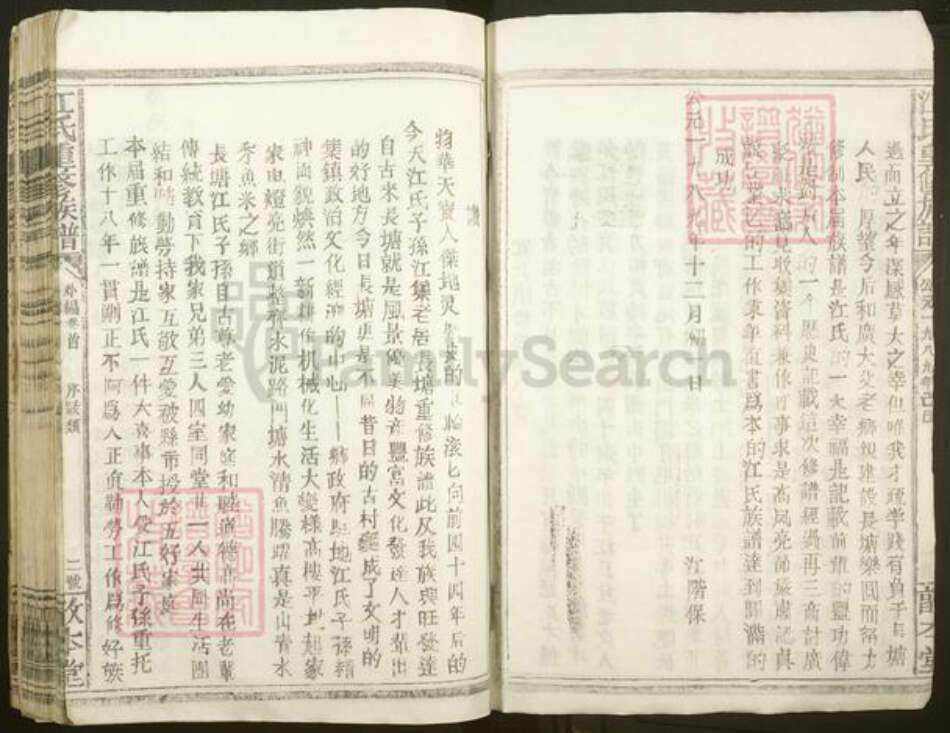 過而立之年深感草大之幸但唯我才疎學賤有負于長塘
人民 厚望今后和廣大父老鄉親建設長塘樂園而努力
修制本届族譜是江氏的一大幸福是記載前輩的豐功偉
的一个歷史記載這次修譜經過再三商計廣
求意見收集資料兼作 事求是高風亮節嚴肅認真
的工作東羊直書爲本的江氏族譜達到圓滿的
成功
江階保
公元一九八九年十二月初 日
物華天寶人傑地灵 的 輪滚匕向前四十四年后的
今天江氏子孫江集老居長塘重修族譜此乃我族興旺發達
自古來長塘就是風景優美物產豐富文化發達人才輩出
的好地方今日長塘更是不同昔日的古村 成了文明的
集镇政治文化經濟的中心——鄉政府駐地江氏子孫精
神面貌焕然一新耕作机械化生活大變樣高樓平地起家
家电燈亮街道整齊水泥路面塘水清魚騰躍真是山青水
秀魚米之鄉
長塘江氏子孫自古尊老愛幼家庭和睦道德高尚在老輩
傳統教育下我家兄弟三人四室同堂廿一人共同生活團
結和睦勤勞持家互敬互愛被縣市授於五好家庭
本届重修族譜是江氏一件大喜事本人受江氏子孫重托
工作十八年一貫剛正不阿爲人正直勤勞工作爲修好族
江氏重修族譜
外編卷首
序跋類
二號
敦本堂
江氏重修族譜
公元一九八九年己巳
敦本堂
FamilySearch